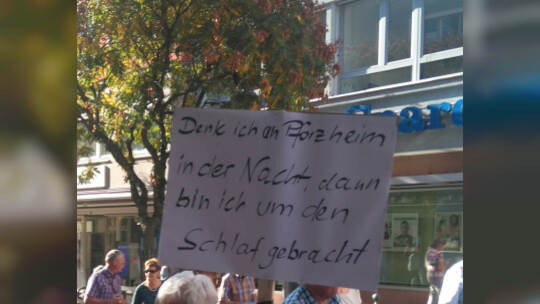 Denk ich an Pforzheim
in der Nacht, dann
bin ich um den
Schlaf gebracht